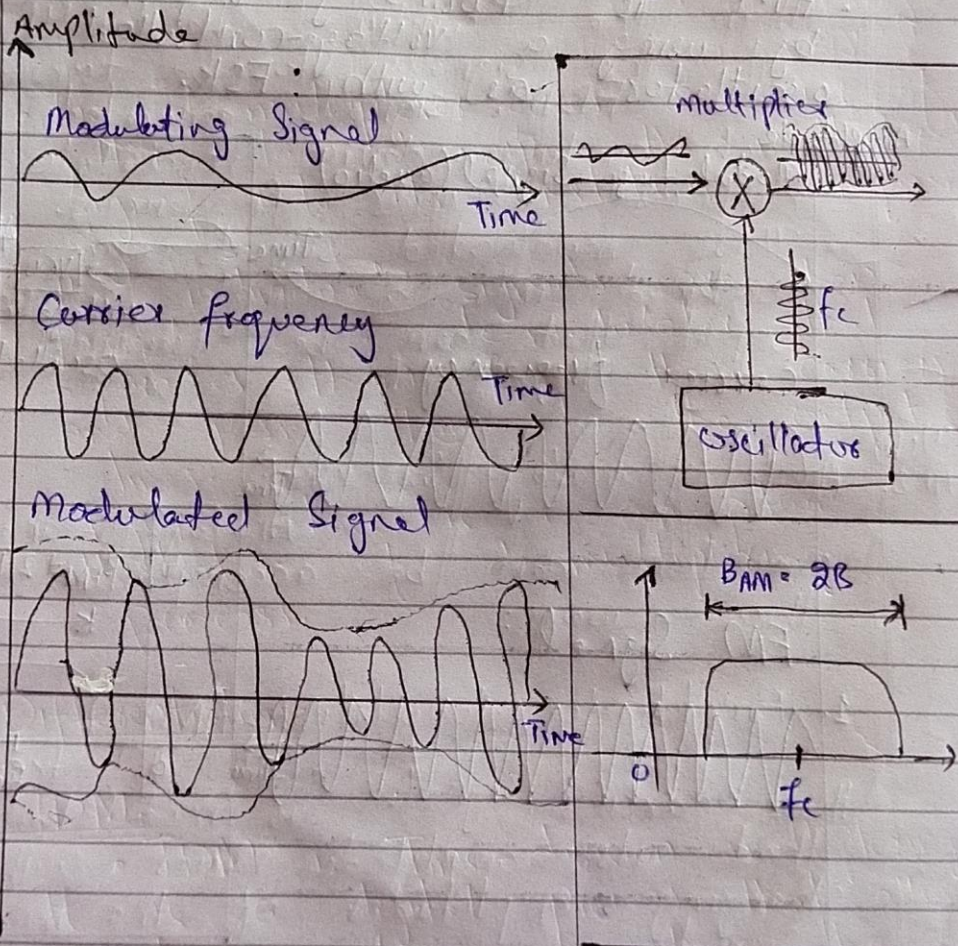 Amplitude
Modulating Signal
Time
Carrier frequency
Time
Modulated Signal
Time
Multiplier
X
fc
oscillator
BAM = 2B
0
fc